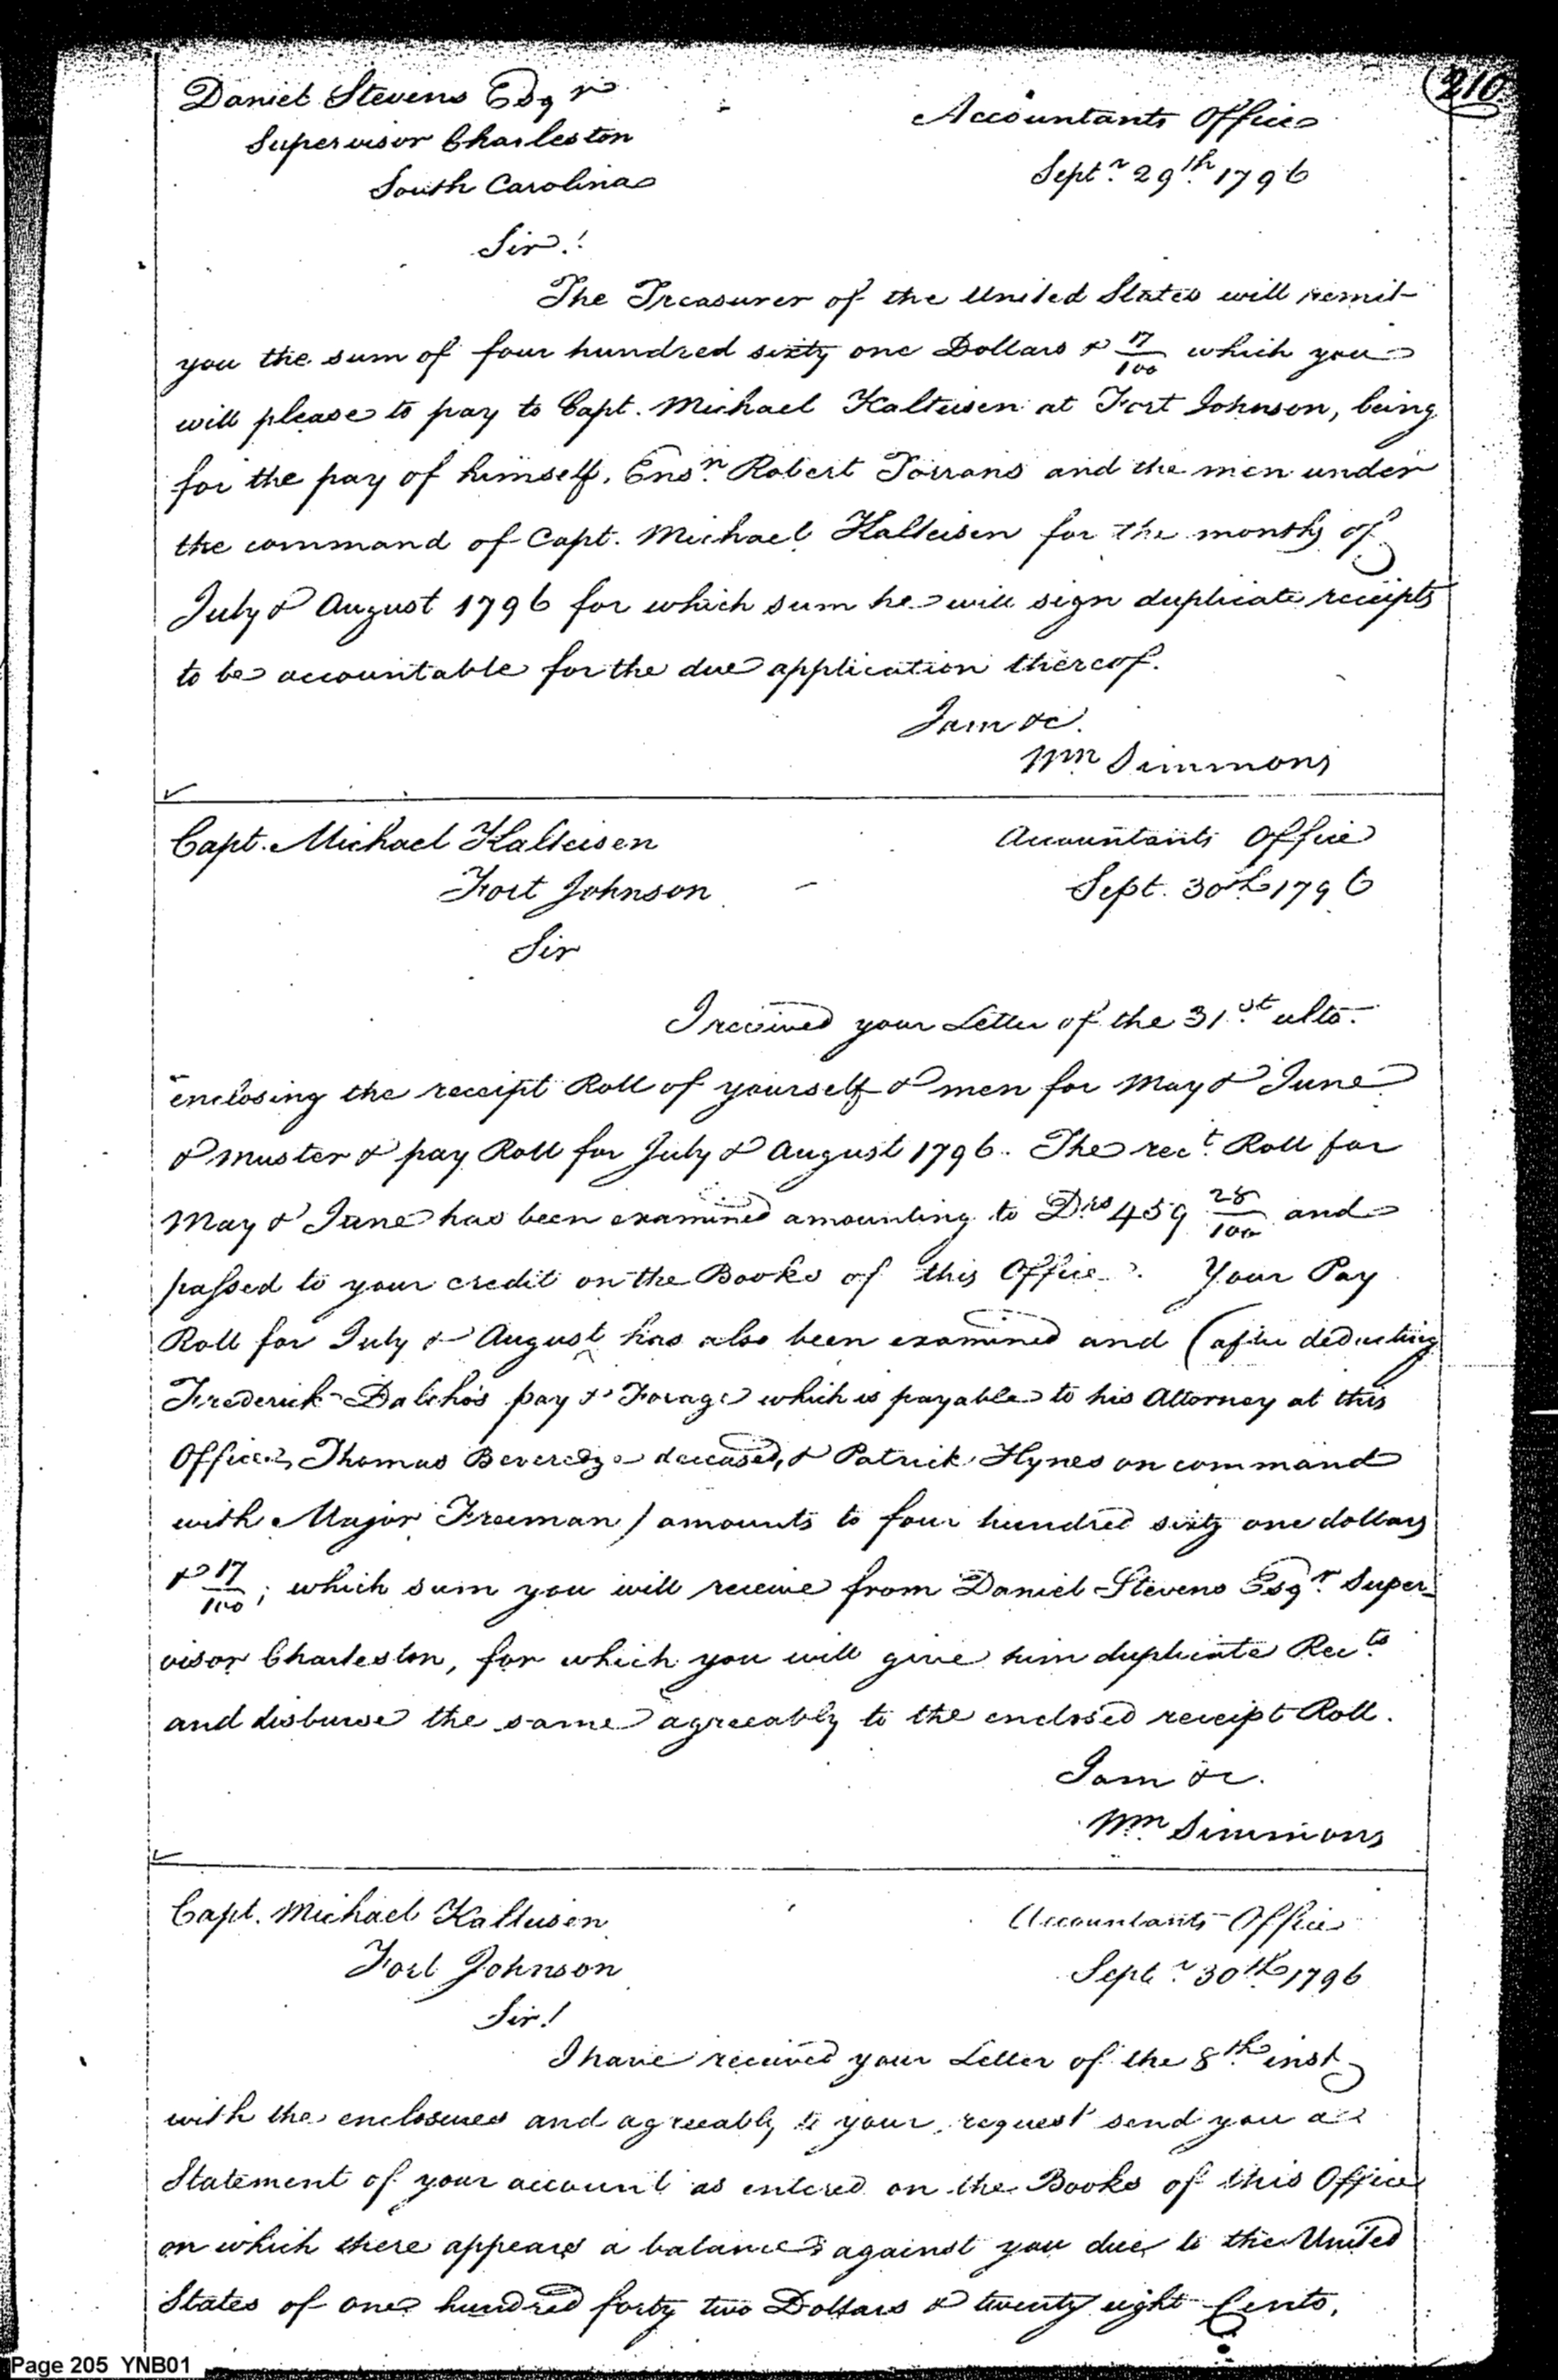 210
Daniel Stevens Esqr
Accountants Office
Supervisor Charleston
Septr. 29th. 1796
South Carolina
Sir!
The Treasurer of the United States will remit
you the sum of four hundred sixty one Dollars & 17/100 which you
will please to pay to Capt. Michael Kalteisen at Fort Johnson, being
for the pay of himself, Ensn. Robert Torrans and the men under
the command of Capt. Michael Kalteisen for the months of
July & August 1796 for which sum he will sign duplicate receipts
to be accountable for the due application thereof.
I am &c.
Wm Simmons
Capt. Michael Kalteisen
Accountants Office
Fort Johnson
Sept. 30th 1796
Sir
I received your Letter of the 31st. ulto.
enclosing the receipt Roll of yourself & men for May & June
& muster & pay Roll for July & August 1796. The rect. Roll for
May & June has been examined amounting to Drs 459 28/100 and
passed to your credit on the Books of this Office. Your Pay
Roll for July & August has also been examined and (after deducting
Frederick Dalcho's pay & Forage which is payable to his Attorney at this
Office, Thomas Beveredge deceased, & Patrick Hynes on command
with Major Freeman) amounts to four hundred sixty one dollars
& 17/100; which sum you will receive from Daniel Stevens Esqr. Super-
visor Charleston, for which you will give him duplicate Rects
and disburse the same agreeably to the enclosed receipt Roll.
I am &c.
Wm. Simmons
Capt. Michael Kalteisen
Accountants Office
Fort Johnson
Septr. 30th 1796
Sir!
I have received your Letter of the 8th. inst
with the enclosures and agreeably to your request send you a
Statement of your account as entered on the Books of this Office
on which there appears a balance against you due to the United
States of one hundred forty two Dollars & twenty eight Cents,
Page 205 YNB01